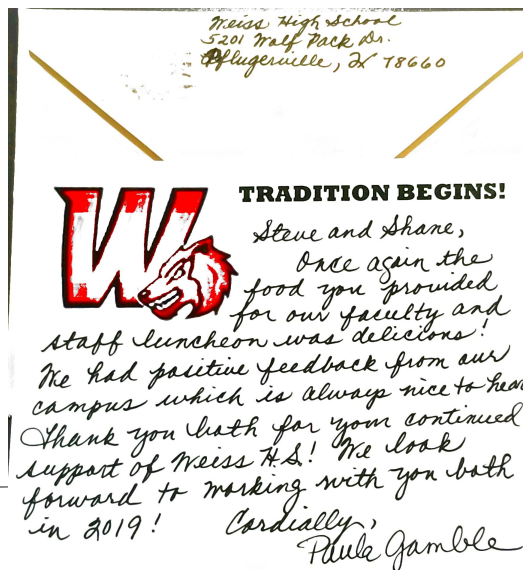 Weiss High School
5201 Wolf Pack Dr.
Pflugerville, TX 78660
W
TRADITION BEGINS!
Steve and Shane,
Once again the
food you provided
for our faculty and
staff luncheon was delicious!
We had positive feedback from our
campus which is always nice to hear
Thank you both for your continued
support of Weiss H.S.! We look
forward to working with you both
in 2019!
Cordially,
Paula Gamble